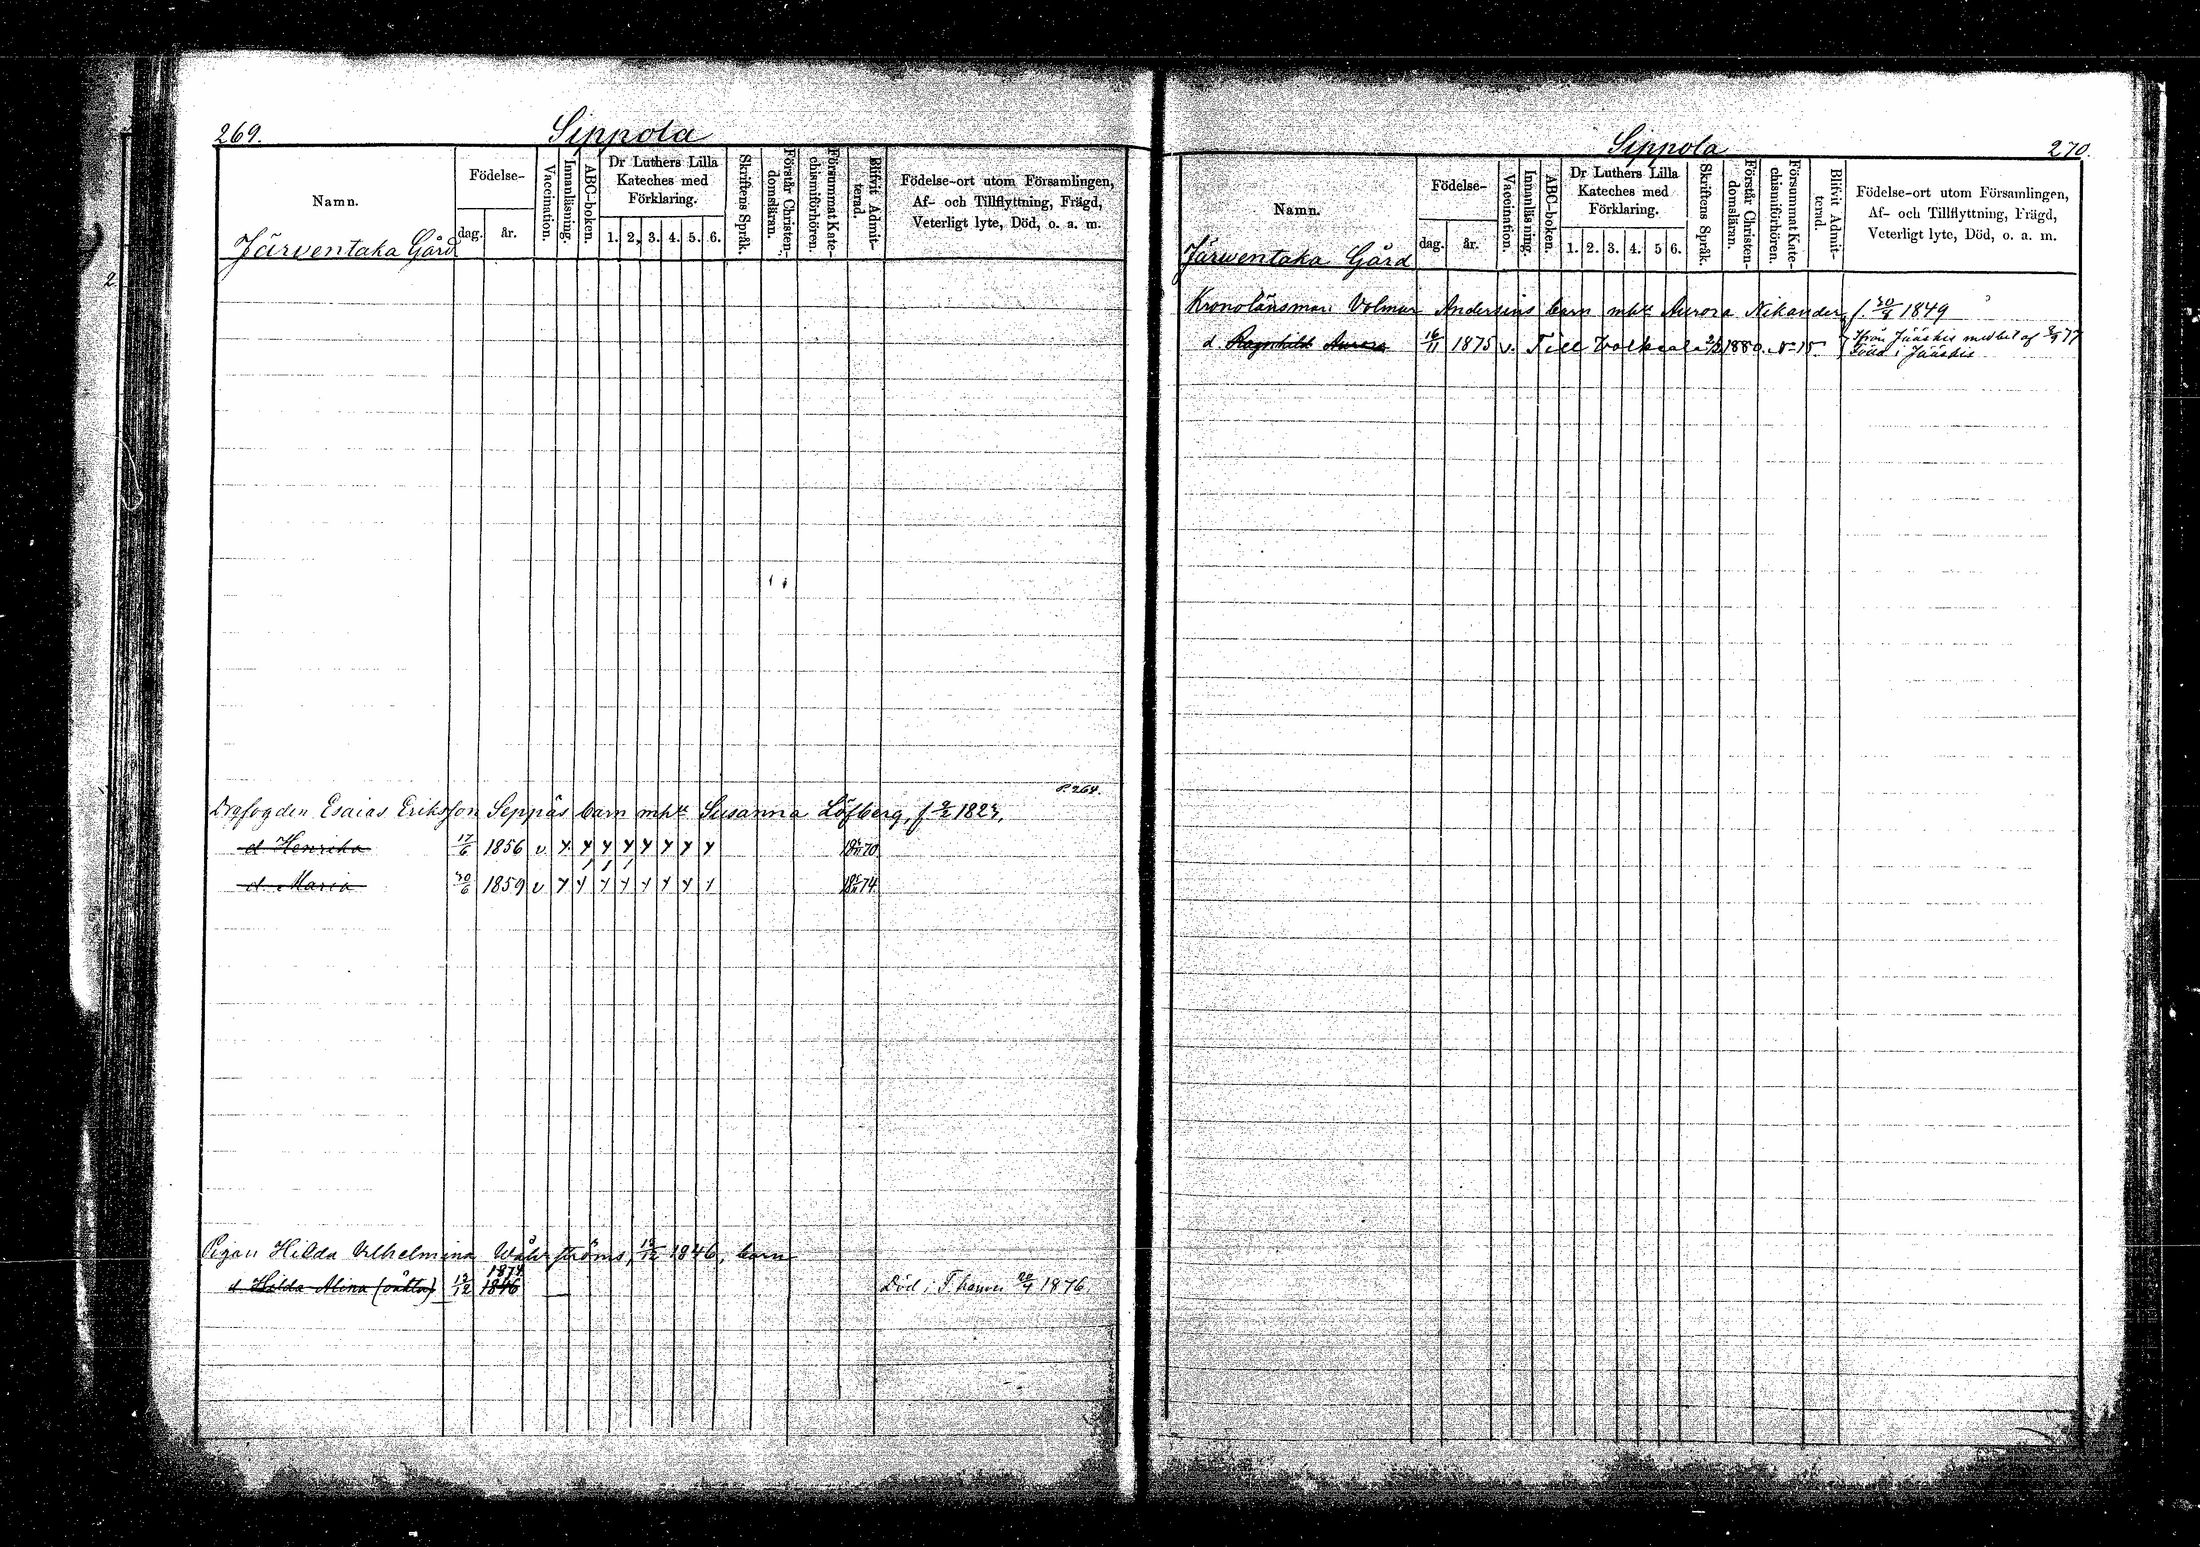 269.
Sippola
Namn.
Födelse-
dag.
år.
Vaccination.
Innanläsning.
ABC-boken.
Dr Luthers Lilla
Kateches med
Förklaring.
1. 2. 3. 4. 5. 6.
Skriftens Språk.
Förstår Christen-
domsläran.
Försummat Kate-
chismiförhören.
Blifvit Admit-
terad.
Födelse-ort utom Församlingen,
Af- och Tillflyttning, Frägd,
Veterligt lyte, Död, o. a. m.
Järventaka Gård
P. 264.
Esaias Eriksson Seppäs barn mh Susanna Löfberg, f
d. Henrika 17/6 1856 v
d. Maria 30/6 1859 v
Pigan Hilda Vilhelmina 1846, barn
1874
d Hilda Alina (oäkta) 12 1846 Död i 1876.
Sippola
270.
Namn.
Födelse-
dag.
år.
Vaccination.
Innanläsning.
ABC-boken.
Dr Luthers Lilla
Kateches med
Förklaring.
1. 2. 3. 4. 5 6.
Skriftens Språk.
Förstår Christen-
domsläran.
Försummat Kate-
chismiförhören.
Blifvit Admit-
terad.
Födelse-ort utom Församlingen,
Af- och Tillflyttning, Frägd,
Veterligt lyte, Död, o. a. m.
Järventaka Gård
Kronolänsman Volmar Andersins barn mh Aurora Nikander, f. 1849
d. Ragnhild Aurora 16/11 1875 v. Till 1880. No 15 från Jääskis med bet af 77
Född i Jääskis